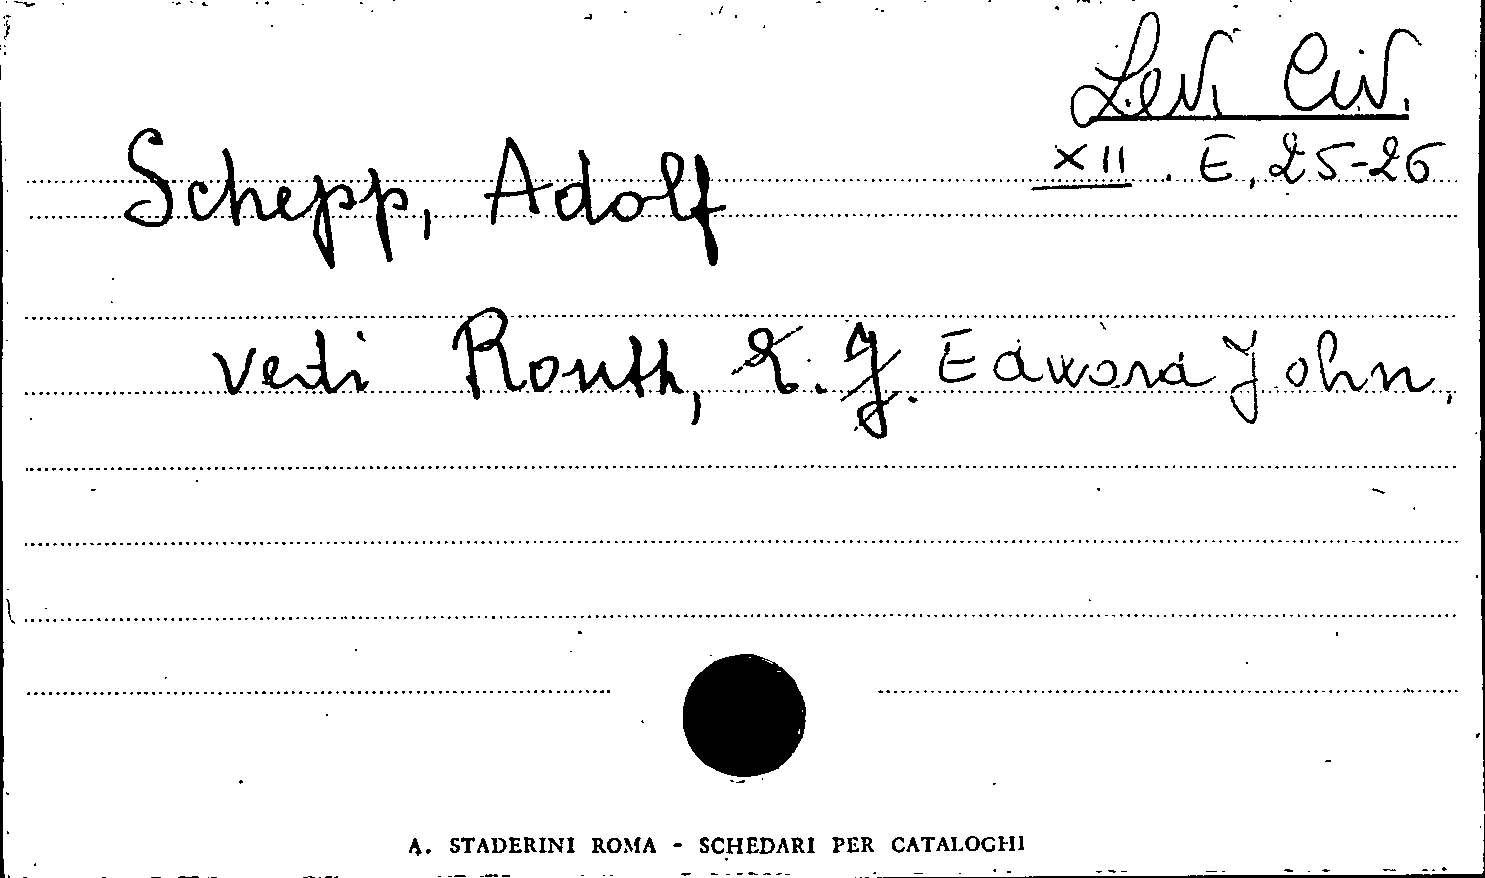 Levi Civ.
XII. E, 25-26
Schepp, Adolf
vedi Routh, E. J. Edward John,
A. STADERINI ROMA - SCHEDARI PER CATALOGHI